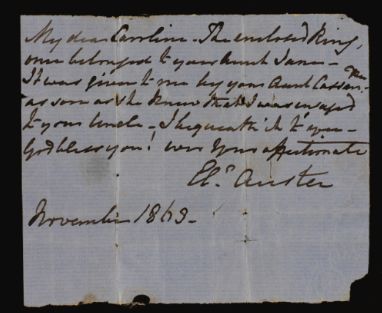 My dear Caroline. The enclosed Ring,
once belonged to your Aunt Jane.
It was given to me by your Aunt Cassandra
as soon as she knew that I was engaged
to your Uncle. I bequeath it to you.
God bless you! ever yours affectionate
Elr. Austen
November 1863.